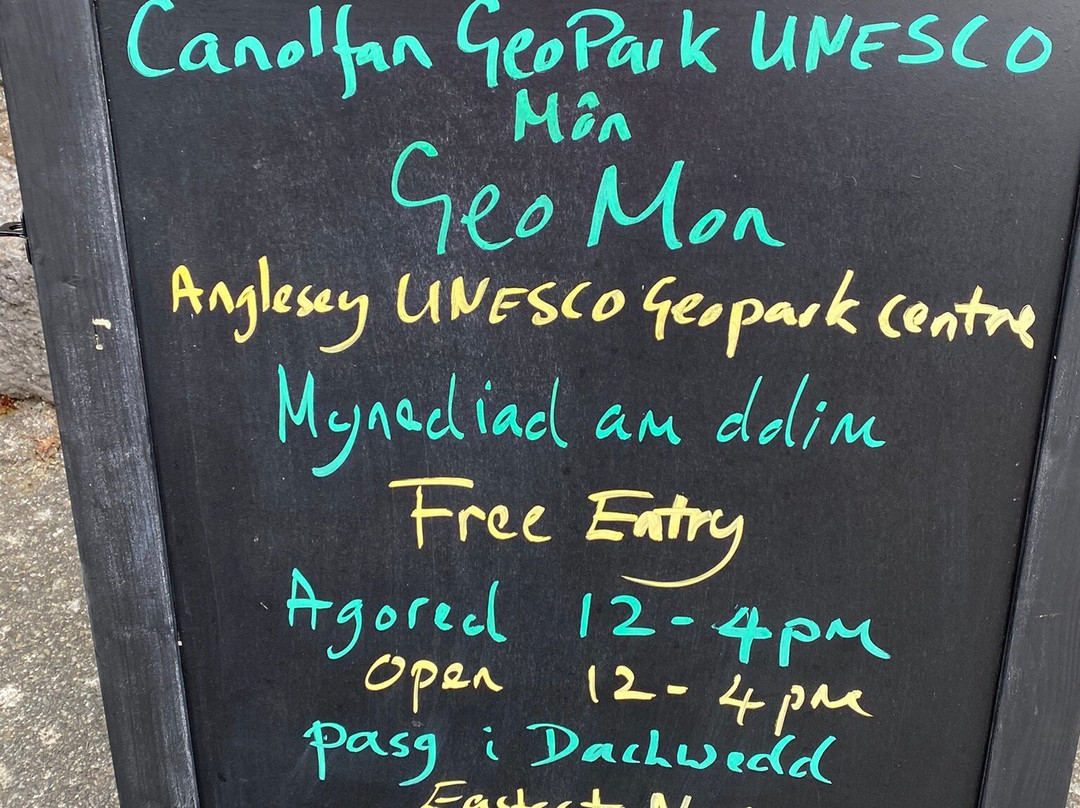 Canolfan GeoPark UNESCO
Môn
Geo Mon
Anglesey UNESCO Geopark centre
Mynediad am ddim
Free Entry
Agored 12-4pm
Open 12-4pm
pasg i Dachwedd